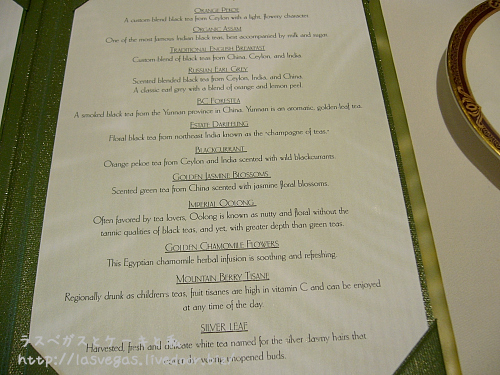 ORANGE PEKOE
A custom blend black tea from Ceylon with a light, flowery character.
ORGANIC ASSAM
One of the most famous Indian black teas, best accompanied by milk and sugar.
TRADITIONAL ENGLISH BREAKFAST
Custom blend of black teas from China, Ceylon, and India.
RUSSIAN EARL GREY
Scented blended black tea from Ceylon, India, and China.
A classic earl grey with a blend of orange and lemon peel.
BC FORESTEA
A smoked black tea from the Yunnan province in China. Yunnan is an aromatic, golden-leaf tea.
ESTATE DARJEELING
Floral black tea from northeast India known as the "champagne of teas."
BLACKCURRANT
Orange pekoe tea from Ceylon and India scented with wild blackcurrants.
GOLDEN JASMINE BLOSSOMS
Scented green tea from China scented with jasmine floral blossoms.
IMPERIAL OOLONG
Often favored by tea lovers, Oolong is known as nutty and floral without the
tannic qualities of black teas, and yet, with greater depth than green teas.
GOLDEN CHAMOMILE FLOWERS
This Egyptian chamomile herbal infusion is soothing and refreshing.
MOUNTAIN BERRY TISANE
Regionally drunk as children's teas, fruit tisanes are high in vitamin C and can be enjoyed
at any time of the day.
SILVER LEAF
Harvested, fresh and delicate white tea named for the silver downy hairs that
unopened buds.
ラスベガスと
http://lasvegas.lived